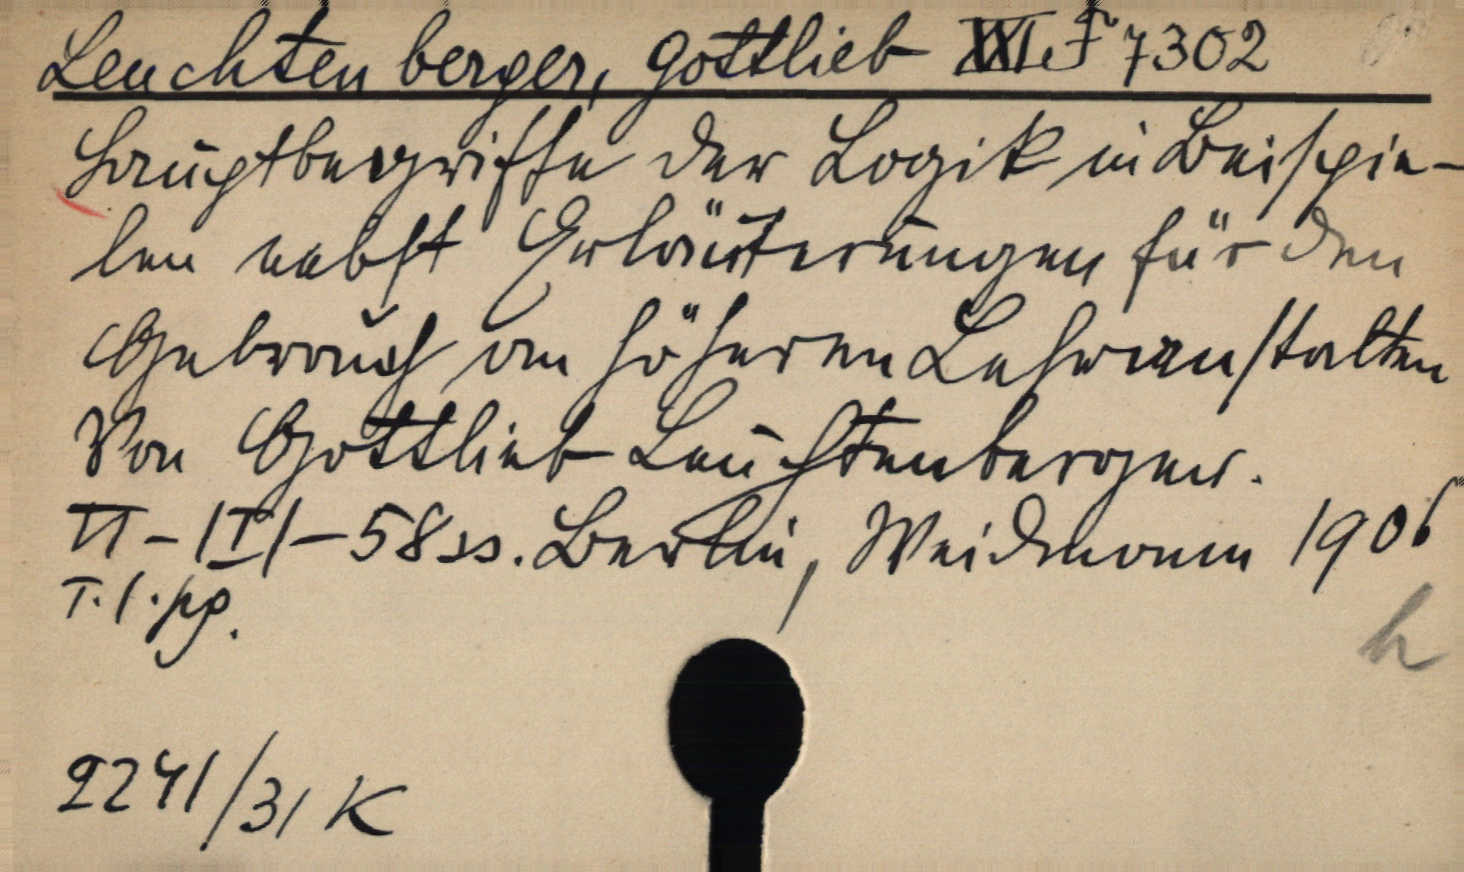 Leuchtenberger, Gottlieb XXI.F 7302
Hauptbegriffe der Logik in Beispie-
len nebst Erläuterungen für den
Gebrauch an höheren Lehranstalten
Von Gottlieb Leuchtenberger.
II-|I|-58 ss. Berlin, Weidmann 1906
T.l.pg.
h
2241/31 K